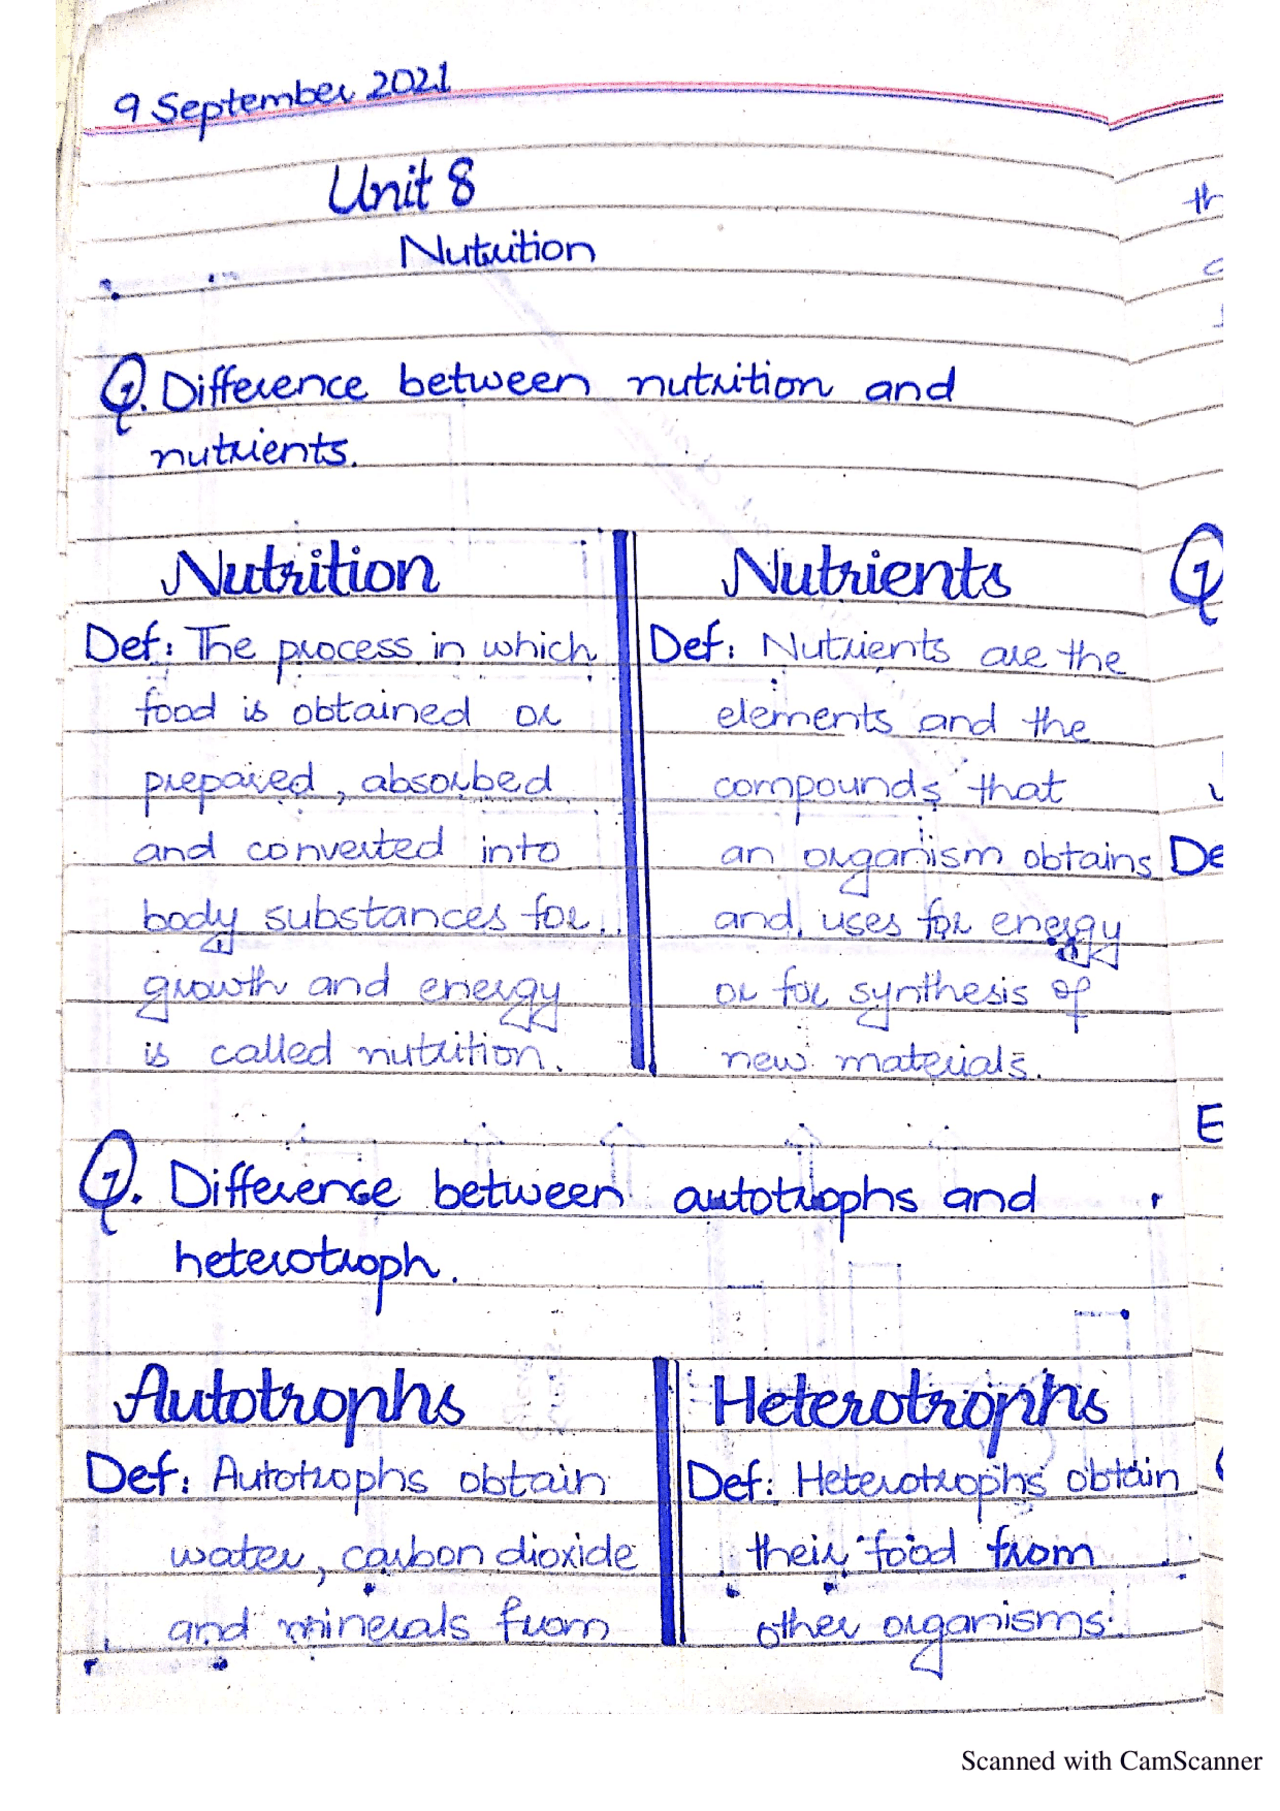 9 September 2021
Unit 8
Nutrition
Q. Difference between nutrition and
nutrients.
Nutrition
Def: The process in which
food is obtained or
prepared, absorbed
and converted into
body substances for
growth and energy
is called nutrition.
Nutrients
Def: Nutrients are the
elements and the
compounds that
an organism obtains
and, uses for energy
or for synthesis of
new materials.
Q. Difference between autotrophs and
heterotroph.
Autotrophs
Def: Autotrophs obtain
water, carbon dioxide
and minerals from
Heterotrophs
Def: Heterotrophs obtain
their food from
other organisms.
Scanned with CamScanner